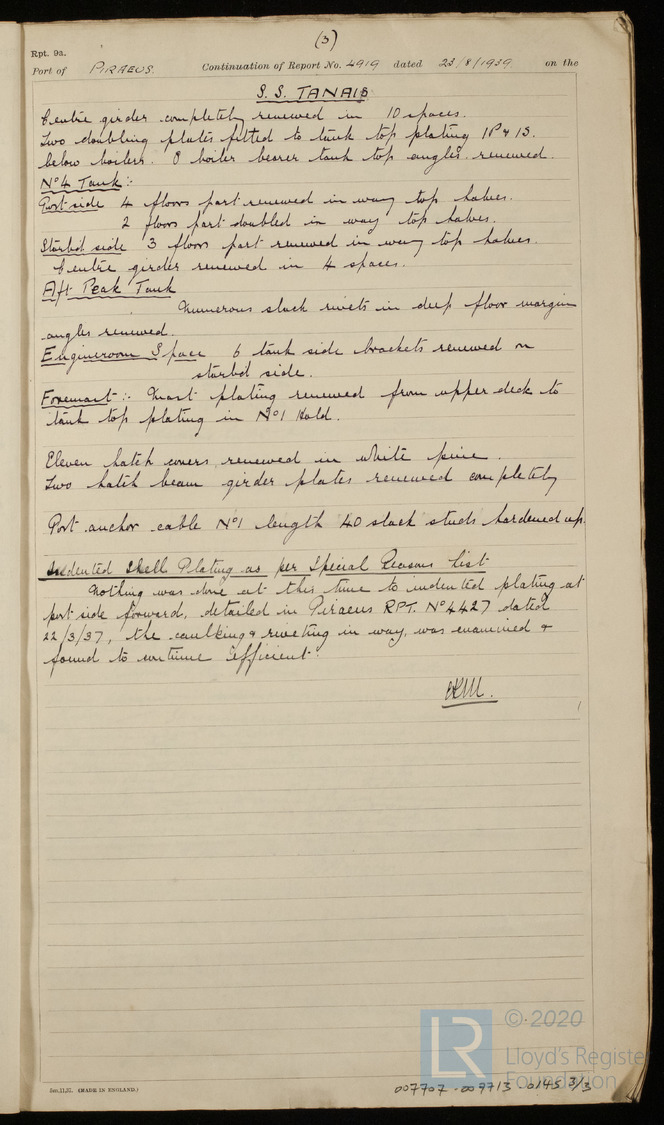 (3)
Rpt. 9a.
Port of PIRAEUS. Continuation of Report No. 4919 dated 23/8/1939 on the
S.S. TANAIS
Centre girder completely renewed in 10 spaces.
Two doubling plates fitted to tank top plating 1P & 1S.
below boilers. 8 boiler bearer tank top angles renewed.
No 4 Tank:-
Port side 4 floors part renewed in way top halves.
2 floors part doubled in way top halves.
Starbd side 3 floors part renewed in way top halves.
Centre girder renewed in 4 spaces.
Aft Peak Tank
Numerous slack rivets in deep floor margin
angles renewed.
Engineroom Space 6 tank side brackets renewed on
starbd side.
Foremast:- Mast plating renewed from upper deck to
tank top plating in No 1 Hold.
Eleven hatch covers renewed in white pine.
Two hatch beam girder plates renewed completely
Port anchor cable No 1 length 40 slack studs hardened up.
Indented Shell Plating as per Special Reasons List
Nothing was done at this time to indented plating at
port side forward, detailed in Piraeus RPT. No 4427 dated
22/3/37, the caulking & riveting in way, was examined &
found to continue efficient.
Jan,11,37. (MADE IN ENGLAND.)
LR
© 2020
Lloyd's Register
Foundation
007707-007713-0145 3/3